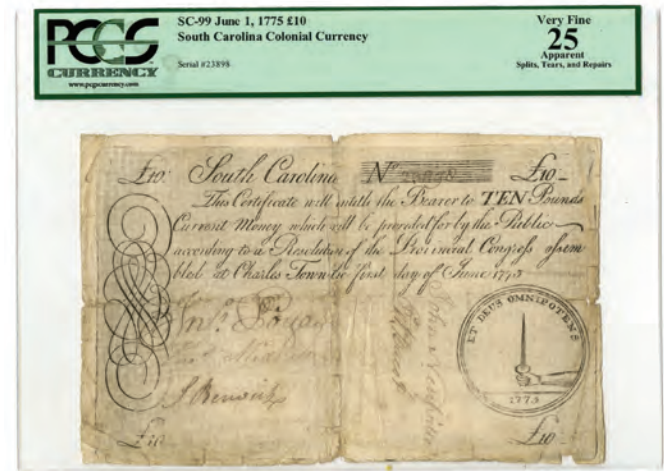 PCGS
CURRENCY
www.pcgscurrency.com
SC-99 June 1, 1775 £10
South Carolina Colonial Currency
Serial #23898
Very Fine
25
Apparent
Splits, Tears, and Repairs
£10: South Carolina No £10
This Certificate will intitle the Bearer to TEN Pounds
Current Money which will be provided for by the Public
according to a Resolution of the Provincial Congress assem
bled at Charles-Town the first day of June 1775
ET DEUS OMNIPOTENS
1775
£10 £10